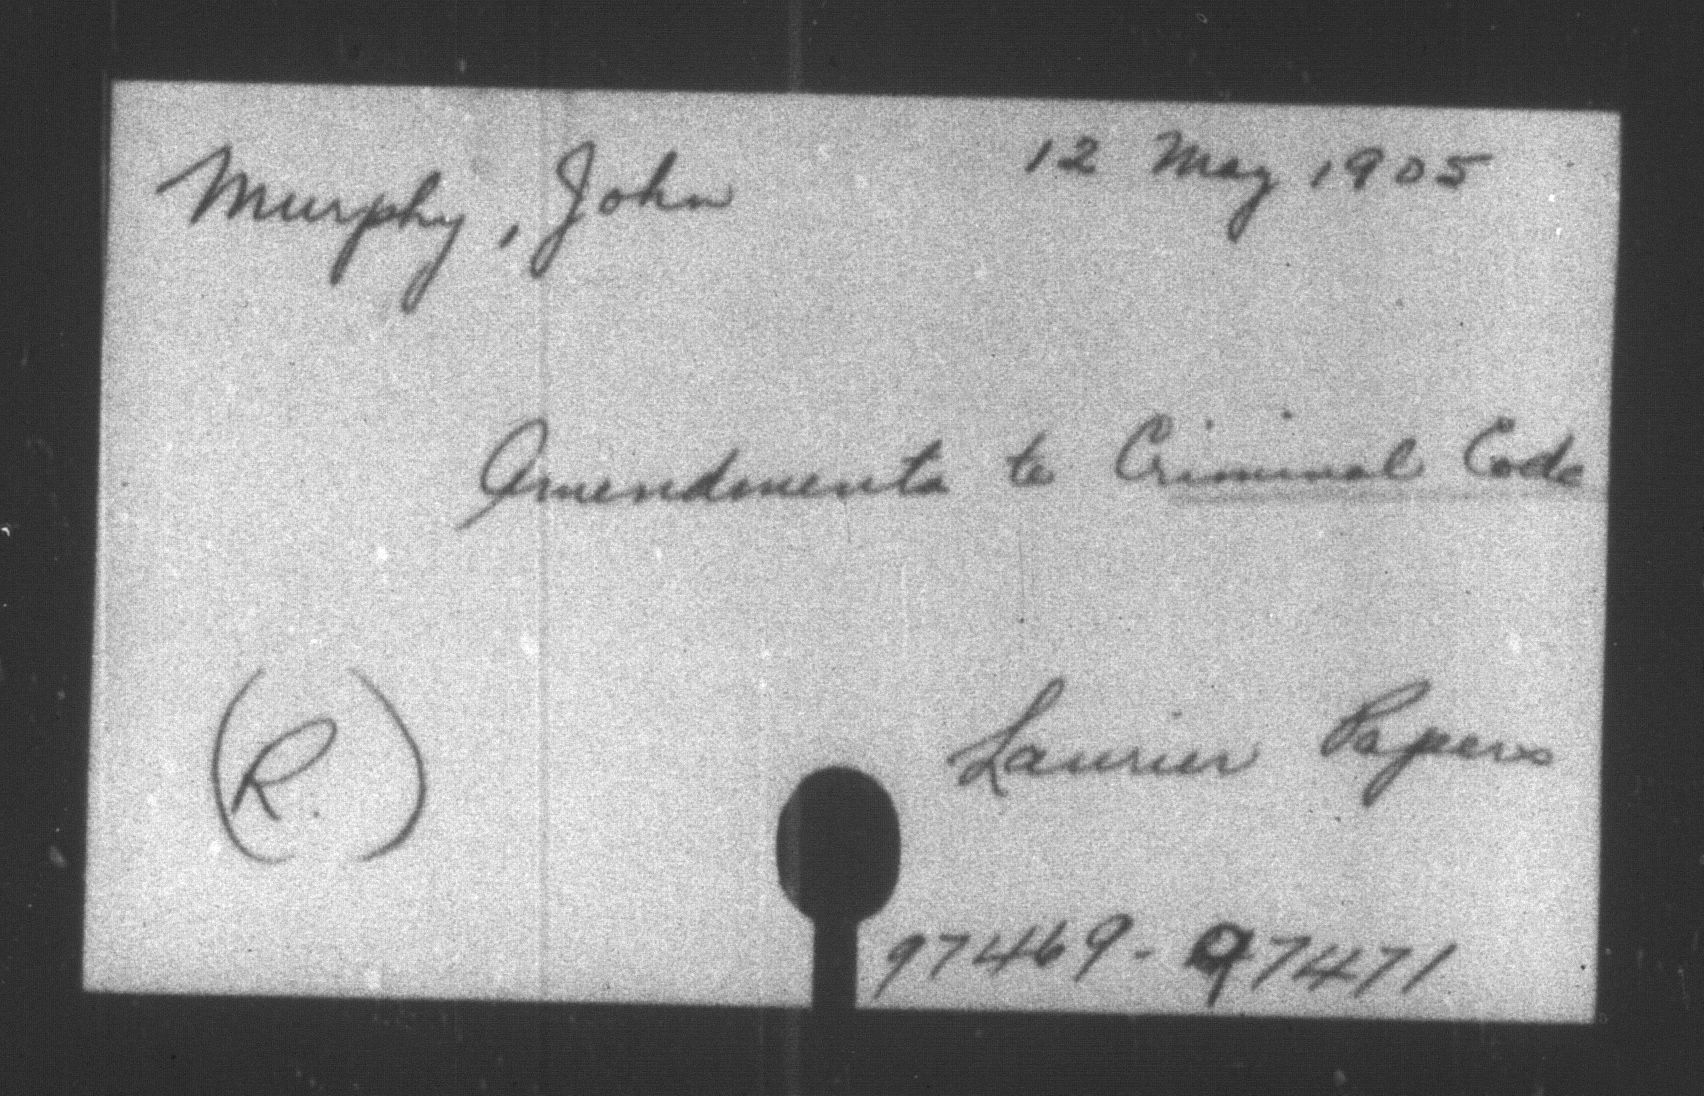 Murphy, John 12 May 1905
Amendments to Criminal Code
(R.) Laurier Papers
97469-97471